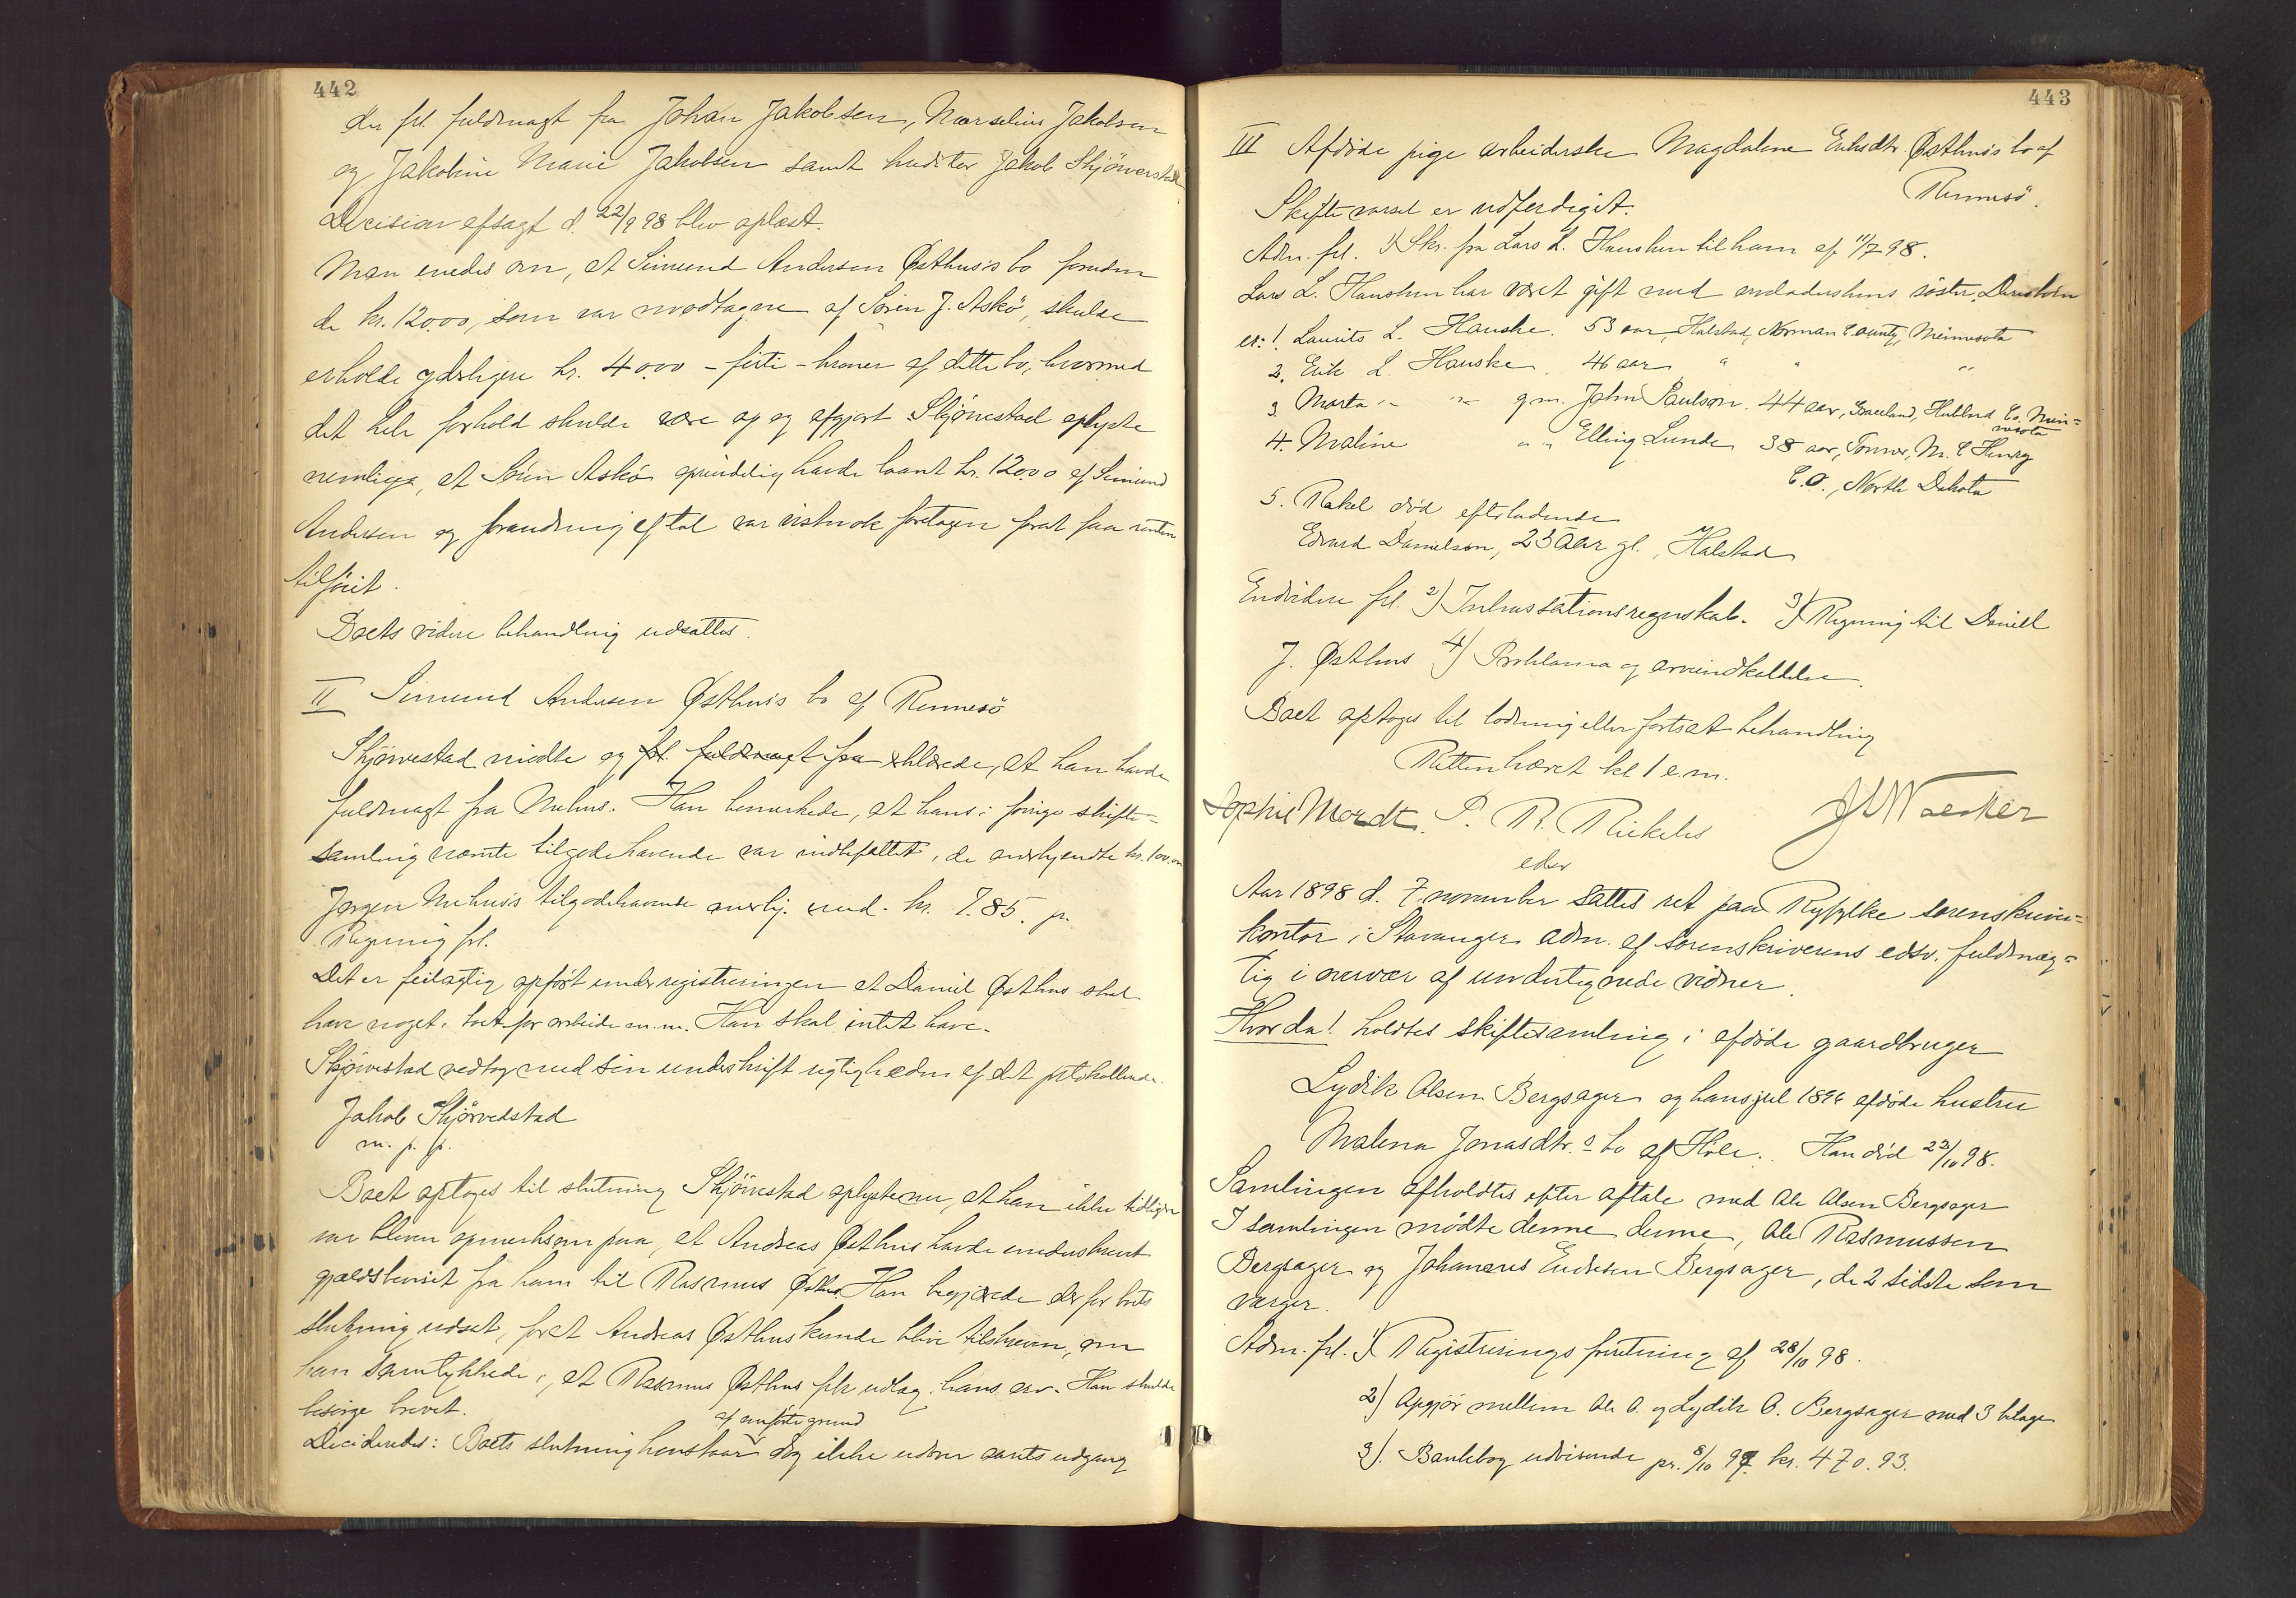 442
der frl. fuldmagt fra Johan Jakobsen, Marselius Jakobsen
og Jakobine Marie Jakobsen samt Jakob Skjörvestad
Decision afsagt d. 22/9 98 blev oplæst.
Man enedes om, at Simund Andersen Østhus's bo foruden
de kr. 120.00, som var modtagne af Sören J. Askö, skulde
erholde yderligere kr. 40.00 - firti - kroner af dette bo, hvormed
det hele forhold skulde være op og afgjort Skjörvestad oplyste
nemlig, at Sören Askö oprindelig havde laant kr. 120.00 af Simund
Andersen og forandring af tal var vistnok foretagen forat faa renten
tilföiet.
Boets videre behandling udsattes.
II Simund Andersen Østhus's bo af Rennesö
Skjörvestad mødte og frl. fuldmagt fra erklærede, at han havde
fuldmagt fra Nuhus. Han bemerkede, at hans i forrige skifte-
samling nævnte tilgodehavende var indbefattet i de anerkjendte kr. 100.00
Jørgen Nuhus's tilgodehavende anerkj. med kr. 7.85. pr.
Regning frl.
Det er feilagtig opført under registreringen at Daniel Østhus skal
have noget i boet for arbeide m.m. Han skal intet have.
Skjörvestad vedtog med sin underskrift rigtigheden af det protokollerede.
Jakob Skjörvedstad
m. p. p.
Boet optoges til slutning Skjörvestad oplyste nu, at han ikke tidligere
var bleven opmerksom paa, at Andreas Østhus havde underskrevet
gjældsbeviset fra ham til Rasmus Østhus. Han begjærede derfor boets
slutning udsat, forat Andreas Østhus kunde blive tilskreven, om
han samtykkede i, at Rasmus Østhus fik udlæg i hans arv. Han skulde
besörge brevet.
af anførte grund
Decideredes: Boets slutning henstaar dog ikke udover aarets udgang
443
III Afdøde pige arbeiderske Magdalene Eriksdtr. Østhus's bo af
Rennesö.
Skiftevarsel er udferdiget.
Adm. frl. 1) Skr. fra Lars L. Hausken til ham af 11/7 98.
Lars L. Hausken har været gift med arveladerskens söster. Deres börn
er: 1. Laurits L. Hauske. 53 aar, Halstad, Norman County, Minnesota
2. Erik L. Hauske. 46 aar " " "
3 Marta " " g.m. John Paulson. 44 aar, Graceland, Hubbard Co. Min-
nesota
4. Maline " " Elling Lunde 38 aar, Towner, Mc Henry
C.O., North Dakota
5. Rakel död efterladende
Edvard Danielson, 23 aar gl., Halstad
Endvidere frl. 2) Inkassationsregnskab. 3) Regning til Daniel
J. Østhus 4) Proklama og arveindkaldelse.
Boet optoges til lodning eller fortsat behandling
Retten hævet kl 1 e.m.
Sophie Mordt. P. R. Rickeles J. Waerner
eller
Aar 1898 d. 7 november sattes ret paa Ryfylke sorenskriver-
kontor i Stavanger adm. af sorenskriverens edsv. fuldmæg-
tig i overvær af undertegnede vidner.
Hvorda! holdtes skiftesamling i afdøde gaardbruger
Lydik Olsen Bergsager og hans jul 1896 afdøde hustru
Malena Jonasdtr.s bo af Høle. Han död 22/10 98.
Samlingen afholdtes efter aftale med Ole Olsen Bergsager
I samlingen mødte denne denne, Ole Rasmussen
Bergsager og Johannes Endresen Bergsager, de 2 sidste som
værger.
Adm. frl. 1) Registreringsforretning af 28/10 98.
2) Opgjør mellem Ole O. og Lydik O. Bergsager med 3 bilage
3). Bankbog udvisende pr. 8/10 97. kr. 470.93.